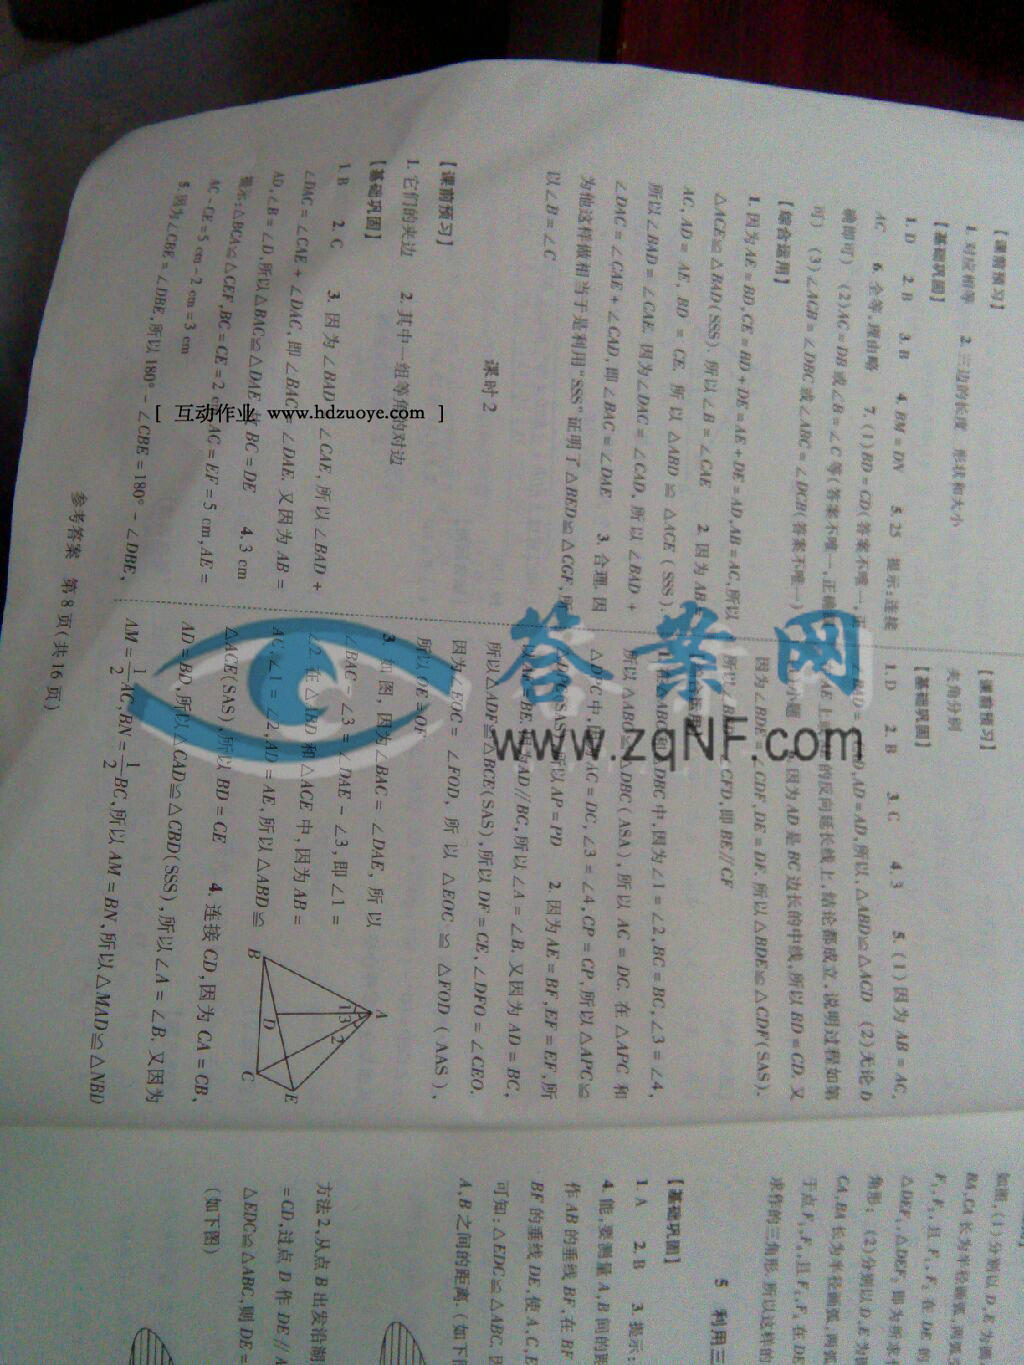 【课前预习】
1. 对应相等 2. 三边的长度 形状和大小
【基础巩固】
1. D 2. B 3. B 4. BM = DN 5. 25 提示:连接
AC 6. 全等,理由略 7. (1) BD = CD(答案不唯一,正
确即可) (2) AC = DB 或∠B = ∠C 等(答案不唯一,正确即
可) (3) ∠ACB = ∠DBC 或∠ABC = ∠DCB(答案不唯一)
【综合运用】
1. 因为 AE = BD, CE = BD + DE = AE + DE = AD, AB = AC, 所以
△ACE≌△BAD(SSS). 所以∠B = ∠CAE 2. 因为 AB =
AC, AD = AE, BD = CE, 所以△ABD ≌ △ACE (SSS).
所以∠BAD = ∠CAE. 因为∠DAC = ∠CAD, 所以∠BAD +
∠DAC = ∠CAE + ∠CAD, 即∠BAC = ∠DAE 3. 合理. 因
为他这样做相当于是利用“SSS”证明了△BED≌△CGF, 所
以∠B = ∠C
课时 2
【课前预习】
1. 它们的夹边 2. 其中一组等角的对边
【基础巩固】
1. B 2. C 3. 因为∠BAD = ∠CAE, 所以∠BAD +
∠DAC = ∠CAE + ∠DAC, 即∠BAC = ∠DAE. 又因为 AB =
AD, ∠B = ∠D, 所以△BAC≌△DAE. 故 BC = DE 4. 3 cm
提示:△BCA≌△CEF, BC = CE = 2 cm, AC = EF = 5 cm, AE =
AC - CE = 5 cm - 2 cm = 3 cm
5. 因为∠CBE = ∠DBE, 所以 180° - ∠CBE = 180° - ∠DBE,
参考答案 第 8 页(共 16 页)
【课前预习】
夹角分别
【基础巩固】
1. D 2. B 3. C 4. 3 5. (1) 因为 AB = AC,
∠BAD = AD = AD, 所以△ABD≌△ACD (2) 无论 D
AE 上或 的反向延长线上,结论都成立. 说明过程如第
小题 因为 AD 是 BC 边长的中线, 所以 BD = CD. 又
因为∠BDE = ∠CDF, DE = DF. 所以△BDE≌△CDF(SAS).
所以∠B = ∠CFD, 即 BE∥CF
△ABC 和△DBC 中, 因为∠1 = ∠2, BC = BC, ∠3 = ∠4,
所以△ABC≌△DBC (ASA), 所以 AC = DC. 在△APC 和
△DPC 中, 因 AC = DC, ∠3 = ∠4, CP = CP, 所以△APC≌
△DPC(SAS), 所以 AP = PD 2. 因为 AE = BF, EF = EF, 所
以 AF = BE. 因为 AD∥BC, 所以∠A = ∠B. 又因为 AD = BC,
所以△ADF≌△BCE(SAS), 所以 DF = CE, ∠DFO = ∠CEO.
因为∠EOC = ∠FOD, 所以△EOC ≌ △FOD (AAS),
所以 OE = OF
3. 如图, 因为∠BAC = ∠DAE, 所以
∠BAC - ∠3 = ∠DAE - ∠3, 即∠1 =
∠2. 在△ABD 和△ACE 中, 因为 AB =
AC, ∠1 = ∠2, AD = AE, 所以△ABD≌
△ACE(SAS), 所以 BD = CE 4. 连接 CD, 因为 CA = CB,
AD = BD, 所以△CAD≌△CBD(SSS), 所以∠A = ∠B. 又因为
AM = 1/2 AC, BN = 1/2 BC, 所以 AM = BN, 所以△MAD≌△NBD
A
1 3 2
B
D
C
E
如图,(1)分别以 D、E 为圆
BA、CA 长为半径画弧,两弧
F₁、F₂, 且 F₁、F₂ 在 DE 的
△DEF₁、△DEF₂ 即为所求
角形; (2)分别以 D、E 为圆
CA、BA 长为半径画弧,两弧
求作的三角形. 所以这样的
5 利用三
【基础巩固】
1. A 2. B 3. 提示:
4. 能,要测量 A、B 间的距
作 AB 的垂线 BF, 在 BF
BF 的垂线 DE, 使 A、C、E
可知:△EDC≌△ABC.
A、B 之间的距离. (如下
方法 2, 从点 B 出发沿湖
= CD, 过点 D 作 DE∥A
△EDC≌△ABC, 则 DE =
(如下图)
[ 互动作业 www.hdzuoye.com ]
答案网
www.zqNF.com